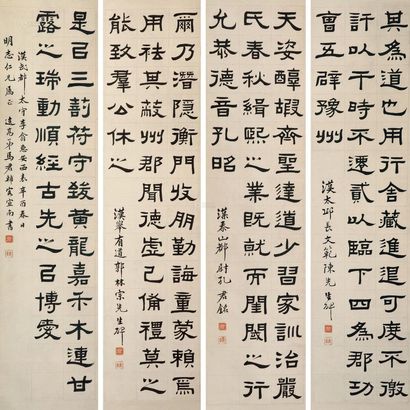 其爲道也用行舍藏進退可度不徼
訐以干時不遷貳以臨下四為郡功
曹五辟豫州
漢太邱長文範陳先生碑
天姿醇嘏齊聖達道少習家訓治嚴
氏春秋緝熙之業既就而閨閾之行
允恭德音孔昭
漢泰山都尉孔君銘
爾乃潛隱衡門收朋勤誨童蒙賴焉
用祛其蔽州郡聞德虛己備禮莫之
能致羣公休之
漢舉有道郭林宗先生碑
是㠯三剖符守致黃龍嘉禾木連甘
露之瑞動順經古先之㠯博愛
漢武都太守李翕惠安西表辛酉春日
明志仁兄屬正